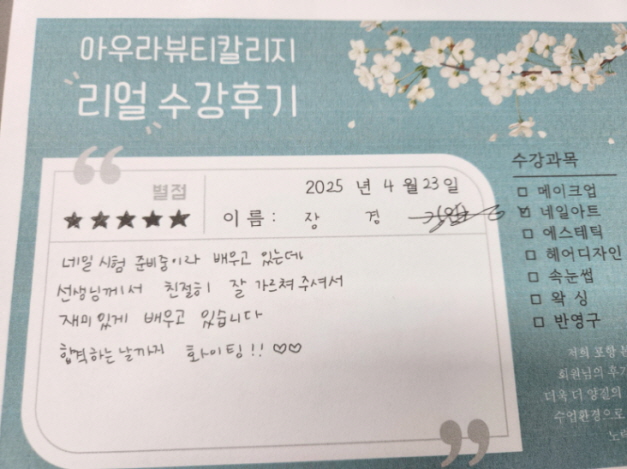 아우라뷰티칼리지
리얼 수강후기
별점
2025 년 4 월 23 일
★★★★★ 이름 : 장 경
네일 시험 준비중이라 배우고 있는데
선생님께서 친절히 잘 가르쳐 주셔서
재미있게 배우고 있습니다
합격하는날까지 화이팅!! ♡♡
수강과목
□ 메이크업
☑ 네일아트
□ 에스테틱
□ 헤어디자인
□ 속눈썹
□ 왁싱
□ 반영구
저희 포항 본
회원님의 후기
더욱 더 양질의
수업환경으로
노력